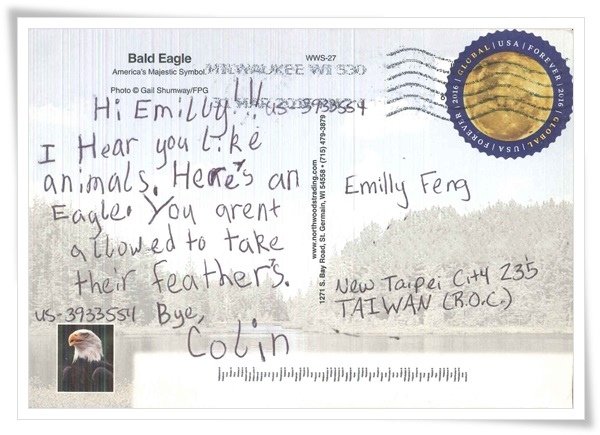 Bald Eagle
America's Majestic Symbol
Photo © Gail Shumway/FPG
WWS-27
MILWAUKEE WI 530
31 MAR
GLOBAL | USA | FOREVER | 2016 | GLOBAL | USA | FOREVER | 2016 |
US-3933554
Hi Emilly!!
I Hear you like
animals. Here's an
Eagle. You arent
allowed to take
their feather's.
US-3933554 Bye,
Colin
www.northwoodstrading.com
1271 S. Bay Road, St. Germain, WI 54558 • (715) 479-3879
Emilly Feng
New Taipei City 235
TAIWAN (R.O.C.)